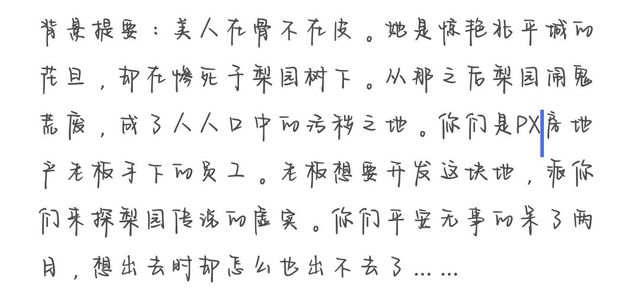 背景提要：美人在骨不在皮。她是惊艳北平城的
花旦，却在惨死于梨园树下。从那之后梨园闹鬼
荒废，成了人人口中的污秽之地。你们是PX房地
产老板手下的员工。老板想要开发这块地，派你
们来探梨园传说的虚实。你们平安无事的呆了两
日，想出去时却怎么也出不去了……